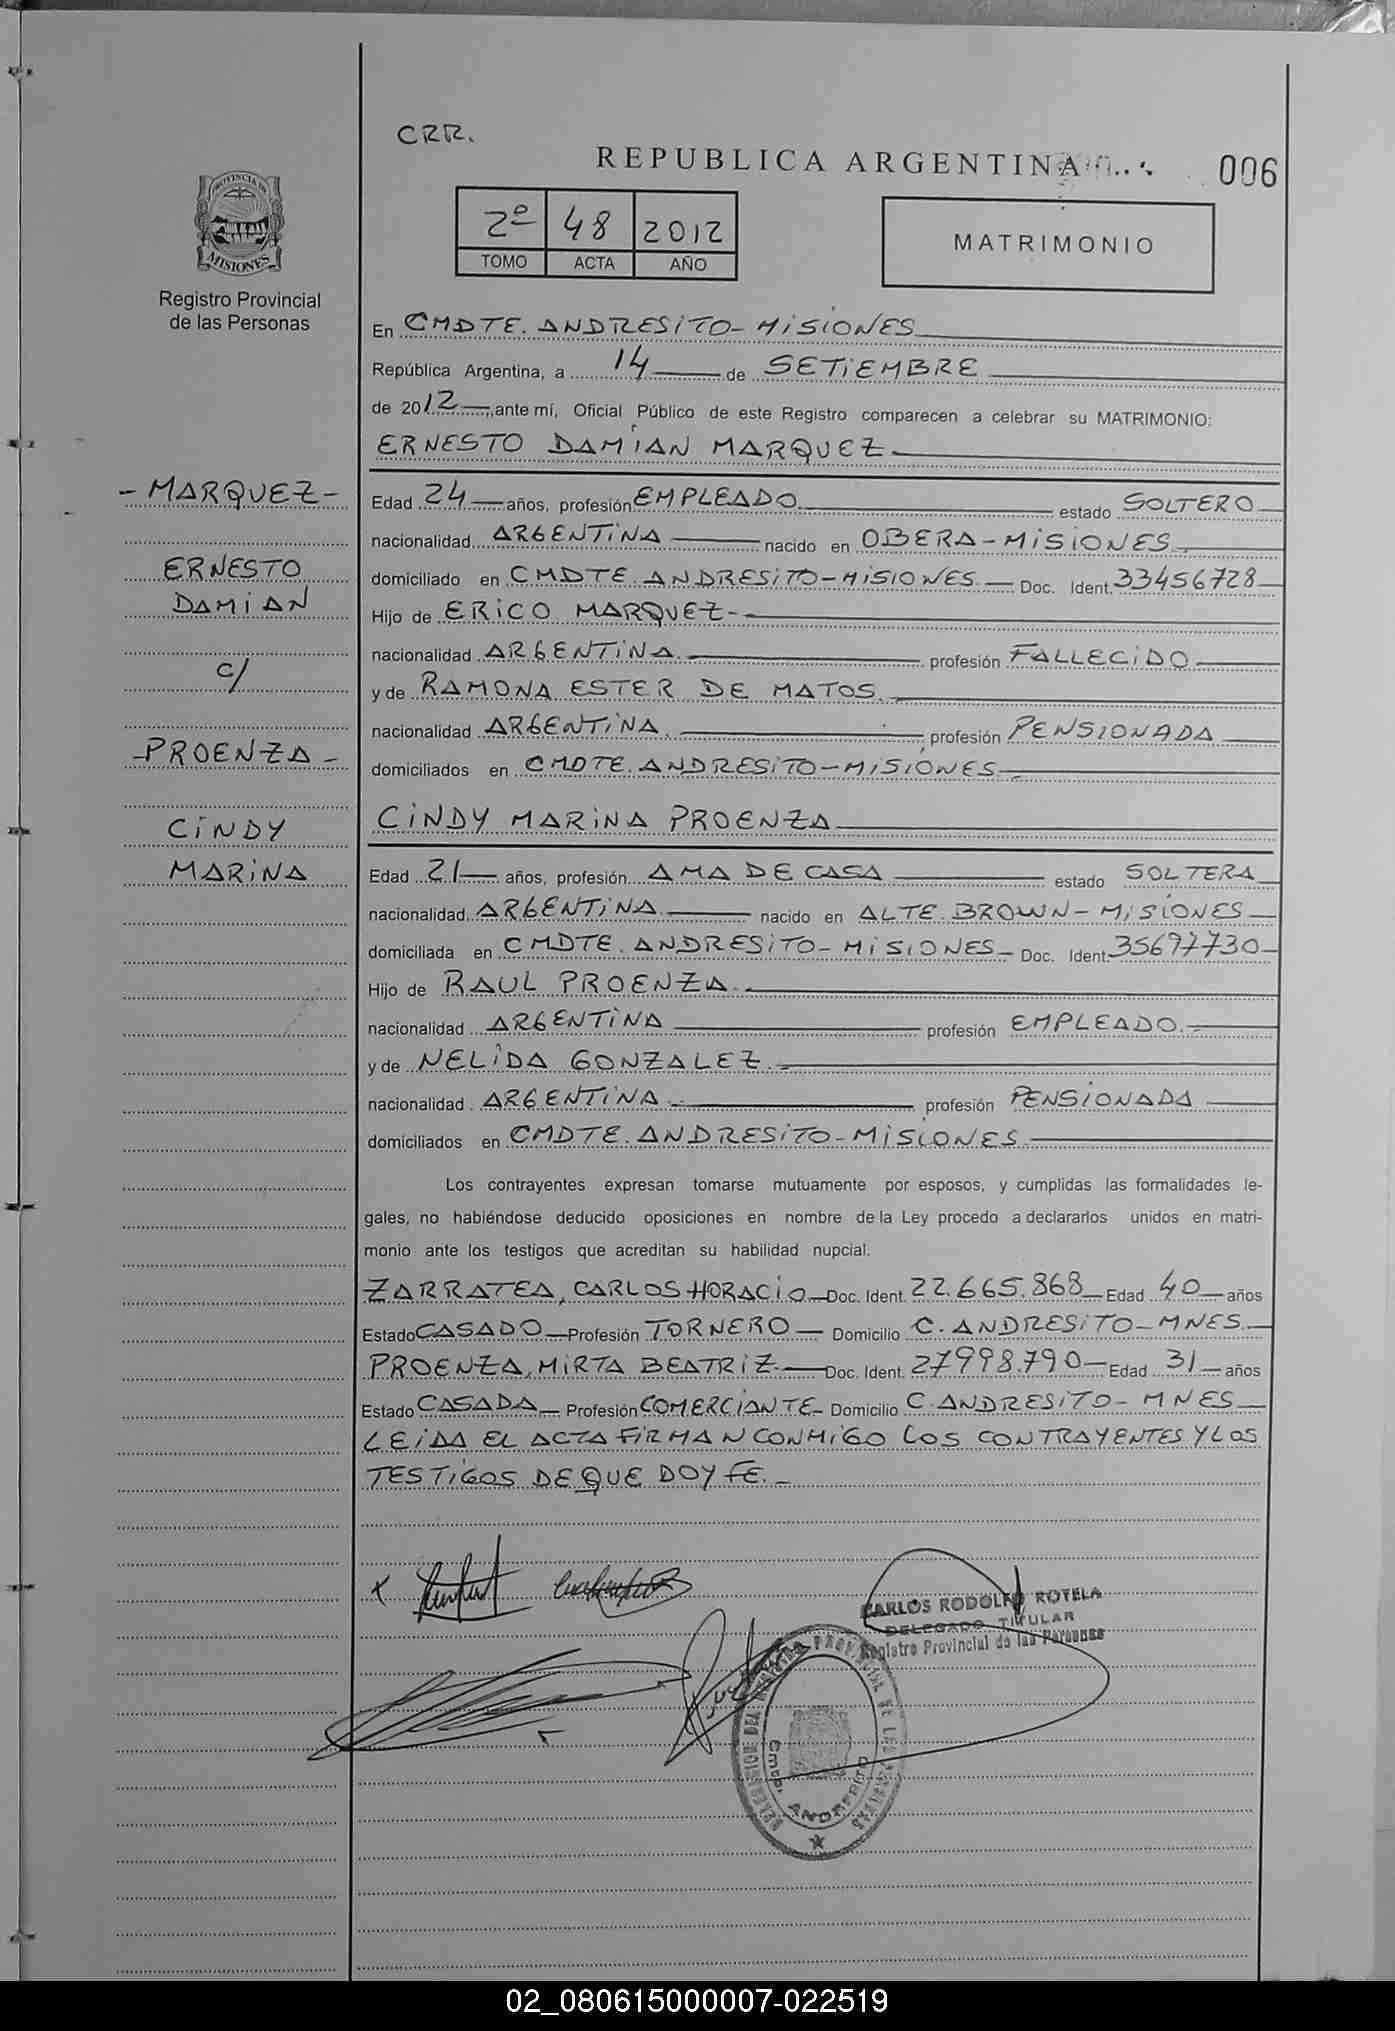 CRR.
REPUBLICA ARGENTINA
006
PROVINCIA DE
MISIONES
Registro Provincial
de las Personas
2º 48 2012
TOMO ACTA AÑO
MATRIMONIO
En CMDTE. ANDRESITO - MISIONES
República Argentina, a 14 de SETIEMBRE
de 2012, ante mí, Oficial Público de este Registro comparecen a celebrar su MATRIMONIO:
ERNESTO DAMIAN MARQUEZ
- MARQUEZ -
ERNESTO
DAMIAN
c/
- PROENZA -
CINDY
MARINA
Edad 24 años, profesión EMPLEADO estado SOLTERO
nacionalidad ARGENTINA nacido en OBERA - MISIONES
domiciliado en CMDTE. ANDRESITO - MISIONES Doc. Ident. 33456728
Hijo de ERICO MARQUEZ
nacionalidad ARGENTINA profesión FALLECIDO
y de RAMONA ESTER DE MATOS.
nacionalidad ARGENTINA profesión PENSIONADA
domiciliados en CMDTE. ANDRESITO - MISIONES
CINDY MARINA PROENZA
Edad 21 años, profesión AMA DE CASA estado SOLTERA
nacionalidad ARGENTINA nacido en ALTE. BROWN - MISIONES
domiciliada en CMDTE. ANDRESITO - MISIONES Doc. Ident. 35697730
Hijo de RAUL PROENZA
nacionalidad ARGENTINA profesión EMPLEADO.
y de NELIDA GONZALEZ.
nacionalidad ARGENTINA profesión PENSIONADA
domiciliados en CMDTE. ANDRESITO - MISIONES
Los contrayentes expresan tomarse mutuamente por esposos, y cumplidas las formalidades le-
gales, no habiéndose deducido oposiciones en nombre de la Ley procedo a declararlos unidos en matri-
monio ante los testigos que acreditan su habilidad nupcial.
ZARRATEA, CARLOS HORACIO Doc. Ident. 22.665.868 Edad 40 años
Estado CASADO Profesión TORNERO Domicilio C. ANDRESITO - MNES.
PROENZA, MIRTA BEATRIZ Doc. Ident. 27998.790 Edad 31 años
Estado CASADA Profesión COMERCIANTE Domicilio C. ANDRESITO - MNES
LEIDA EL ACTA FIRMAN CONMIGO LOS CONTRAYENTES Y LOS
TESTIGOS DE QUE DOY FE.
CARLOS RODOLFO ROTELA
DELEGADO TITULAR
Registro Provincial de las Personas
Cmdte. ANDRESITO
02_080615000007-022519